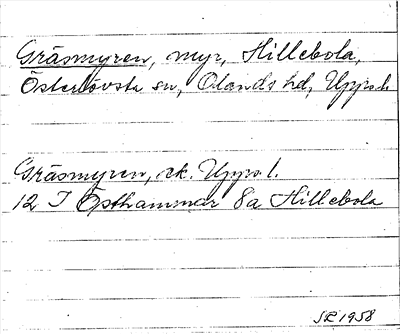 Gräsmyren, myr, Hillebola,
Österlövsta sn, Olands hd, Upps. l.
Gräsmyren, ek. Upps l.
12 I Östhammar 8a Hillebola
SR 1958